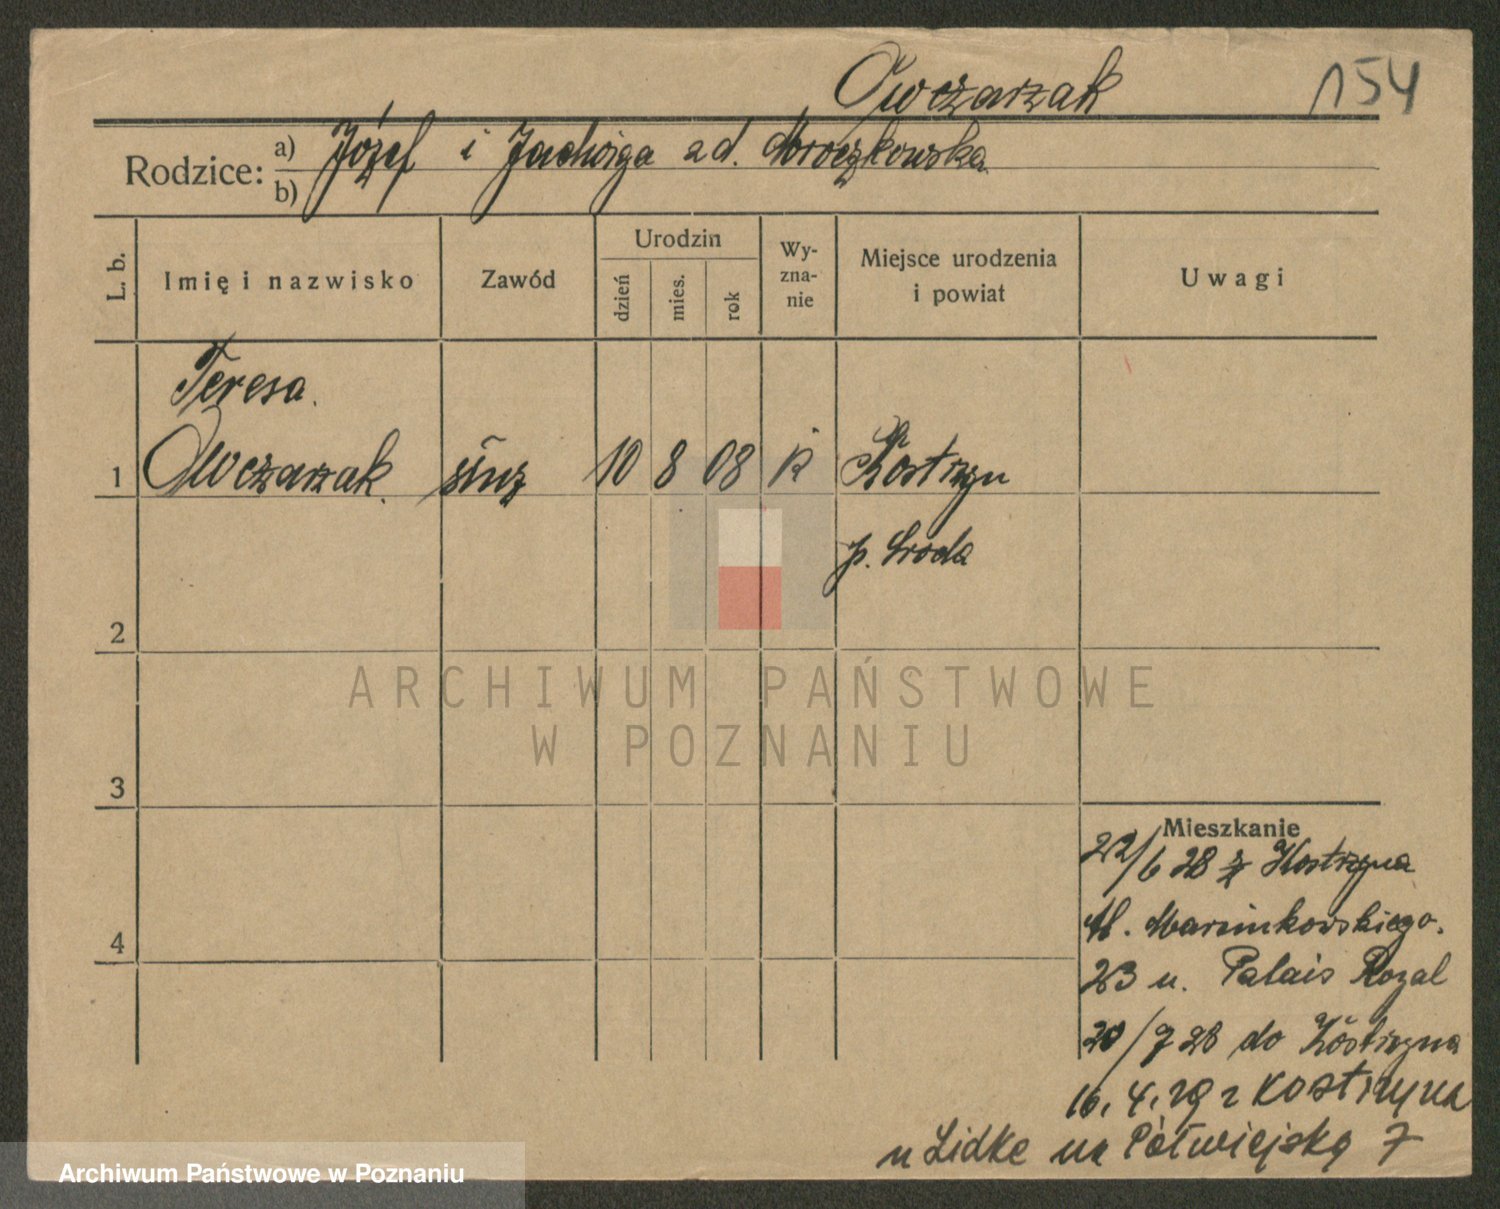 Owczarzak 154
Rodzice: a) Józef i Jadwiga zd. Mroczkowska
b)
L. b. Imię i nazwisko Zawód Urodzin dzień mies. rok Wyznanie Miejsce urodzenia i powiat Uwagi
Teresa
1 Owczarzak służ 10 8 08 K Kostrzyn
p. Środa
2
ARCHIWUM PAŃSTWOWE
W POZNANIU
3
Mieszkanie
22/6 28 z Kostrzyna
Al. Marcinkowskiego.
23 u. Palais Royal
20/7 28 do Kostrzyna
4
16. 4. 29 z Kostrzyna
u Lidke na Półwiejską 7
Archiwum Państwowe w Poznaniu